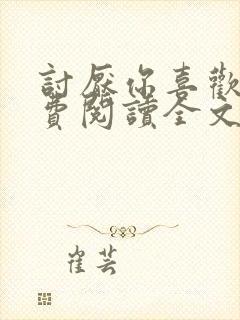 討厭你喜歡
費閱讀全文
崔芸